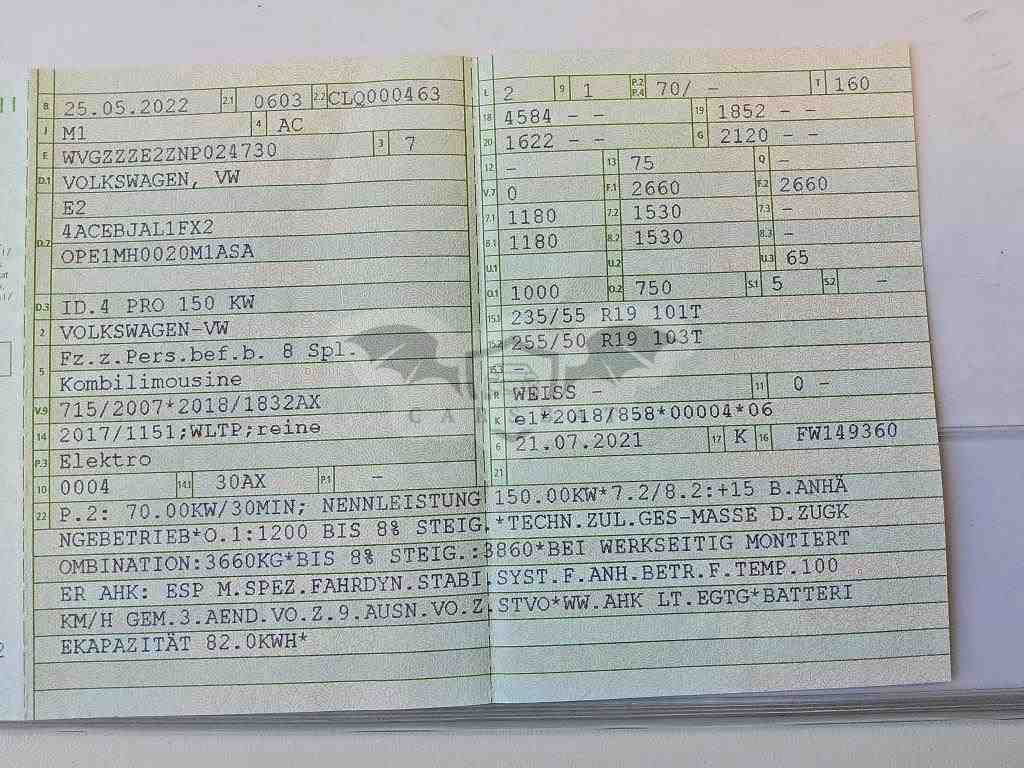 B 25.05.2022 2.1 0603 2.2 CLQ000463
J M1 4 AC
E WVGZZZE2ZNP024730 3 7
D.1 VOLKSWAGEN, VW
E2
D.2 4ACEBJAL1FX2
OPE1MH0020M1ASA
D.3 ID.4 PRO 150 KW
2 VOLKSWAGEN-VW
5 Fz.z.Pers.bef.b. 8 Spl.
Kombilimousine
V.9 715/2007*2018/1832AX
14 2017/1151;WLTP;reine
P.3 Elektro
10 0004 14.1 30AX P.1 –
L 2 9 1 P.2 P.4 70/ – T 160
18 4584 – – 19 1852 – –
20 1622 – – G 2120 – –
12 – 13 75 Q –
V.7 0 F.1 2660 F.2 2660
7.1 1180 7.2 1530 7.3 –
8.1 1180 8.2 1530 8.3 –
U.1 U.2 U.3 65
O.1 1000 O.2 750 S.1 5 S.2 –
15.1 235/55 R19 101T
15.2 255/50 R19 103T
15.3 –
R WEISS – 11 0 –
K e1*2018/858*00004*06
6 21.07.2021 17 K 16 FW149360
21
22 P.2: 70.00KW/30MIN; NENNLEISTUNG 150.00KW*7.2/8.2:+15 B.ANHÄ
NGEBETRIEB*O.1:1200 BIS 8% STEIG.*TECHN.ZUL.GES-MASSE D.ZUGK
OMBINATION:3660KG*BIS 8% STEIG.:3860*BEI WERKSEITIG MONTIERT
ER AHK: ESP M.SPEZ.FAHRDYN.STABI.SYST.F.ANH.BETR.F.TEMP.100
KM/H GEM.3.AEND.VO.Z.9.AUSN.VO.Z.STVO*WW.AHK LT.EGTG*BATTERI
EKAPAZITÄT 82.0KWH*
CARS